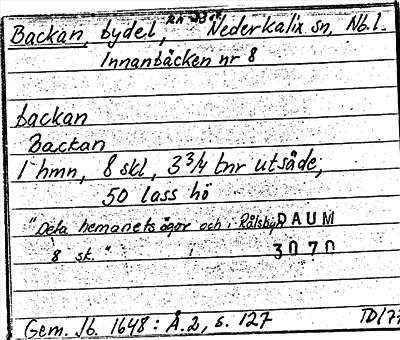 Backan, bydel, Nederkalix sn, Nb.l.
Innanbäcken nr 8
backan
Backan
1 hmn, 8 skl, 3 3/4 tnr utsäde,
50 lass hö
"Deta hemanets ägor och i Rålsbyn
DAUM
8 sk."
3070
Gem. Jb. 1648: Å.2, s. 127
TD/77